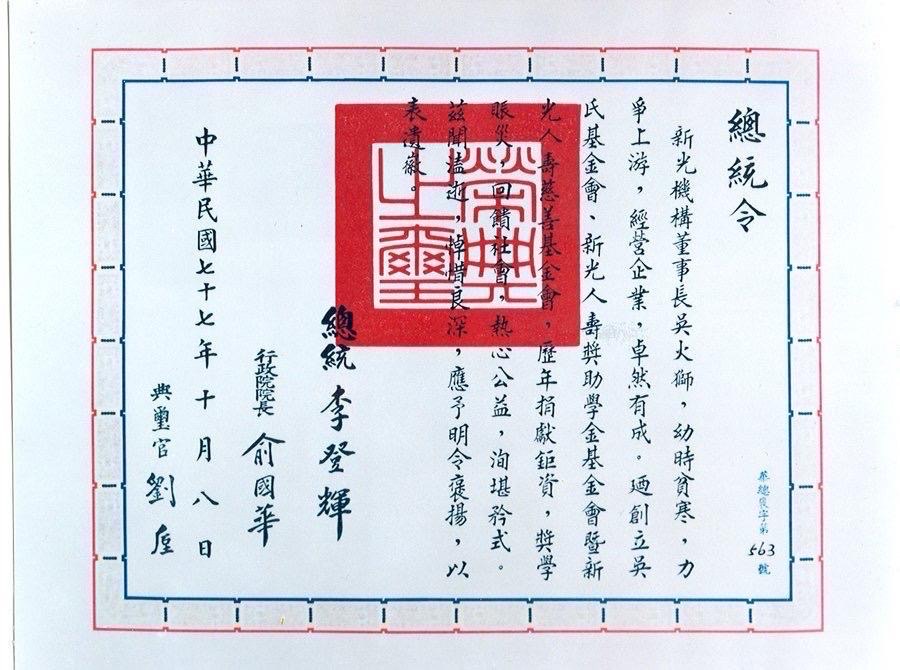 總統令
華總褒字第563號
新光機構董事長吳火獅，幼時貧寒，力
爭上游，經營企業，卓然有成。迺創立吳
氏基金會、新光人壽獎助學金基金會暨新
光人壽慈善基金會，歷年捐獻鉅資，獎學
賑災，回饋社會，熱心公益，洵堪矜式。
茲聞溘逝，悼惜良深，應予明令褒揚，以
表遺徽。
榮典之璽
總統 李登輝
行政院院長 俞國華
中華民國七十七年十月八日
典璽官 劉垕